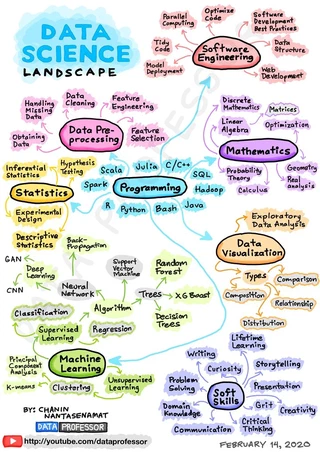 DATA
SCIENCE
LANDSCAPE
Parallel
Computing
Optimize
Code
Software
Development
Best Practices
Tidy
Code
Data
Structure
Model
Deployment
Software
Engineering
Web
Development
Handling
Missing
Data
Data
Cleaning
Feature
Engineering
Obtaining
Data
Data Pre-
processing
Feature
Selection
Discrete
Mathematics
Matrices
Linear
Algebra
Optimization
Mathematics
Probability
Theory
Calculus
Geometry
Real
analysis
Inferential
Statistics
Hypothesis
Testing
Statistics
Experimental
Design
Descriptive
Statistics
Scala
Julia
C/C++
SQL
Spark
Programming
Hadoop
R
Python
Bash
Java
Exploratory
Data Analysis
Data
Visualization
Types
Comparison
Composition
Relationship
Distribution
GAN
Back-
Propagation
Deep
Learning
CNN
Neural
Network
Support
Vector
Machine
Random
Forest
Trees
XGBoost
Algorithm
Decision
Trees
Classification
Supervised
Learning
Regression
Principal
Component
Analysis
Machine
Learning
K-means
Clustering
Unsupervised
Learning
Lifetime
Learning
Writing
Curiosity
Storytelling
Problem
Solving
Presentation
Soft
Skills
Domain
Knowledge
Grit
Creativity
Communication
Critical
Thinking
BY: CHANIN
NANTASENAMAT
DATA PROFESSOR
http://youtube.com/dataprofessor
FEBRUARY 14, 2020